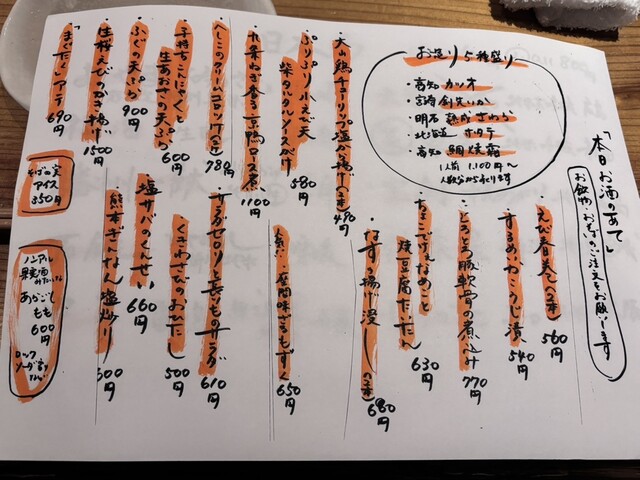 「本日お酒のあて」
お飲物、お寿のご注文をお願いします
お造り5種盛り
・高知 カツオ
・宮崎 剣先いか
・明石 熟成さわら
・北海道 ホタテ
・高知 鯛焼霜
1人前 1,100円〜
人数分からもります
・大山鶏チューリップ塩から揚げ(2本) 490円
・ぷりぷり小えび天
柴タルタルソースがけ 580円
・九条ねぎ香る京鴨ロース煮 1100円
・へしこのクリームコロッケ(2ヶ) 780円
・子持ちこんにゃく
生あおさの天ぷら 600円
・ふぐの天ぷら 900円
・生桜えびのかき揚げ 1500円
「まぐたく」アテ 690円
・えび春巻(2本) 560円
・するめいかこうじ漬 540円
・とろとろ豚軟骨の煮込み 770円
・たまこてげぇなめこと
焼豆腐たいたん 630円
・なすの揚げ浸 (2本) 680円
・座間味もずく 650円
・サラダセロリと長いものサラダ 610円
・くきわさびのおひたし 500円
・塩サバのくんせい 660円
・熊本ぎんなん塩炒り 500円
そばの実
アイス
350円
ノンアル
果実酒
みたいな
あらごし
もも
600円
ロック
ソーダ割り